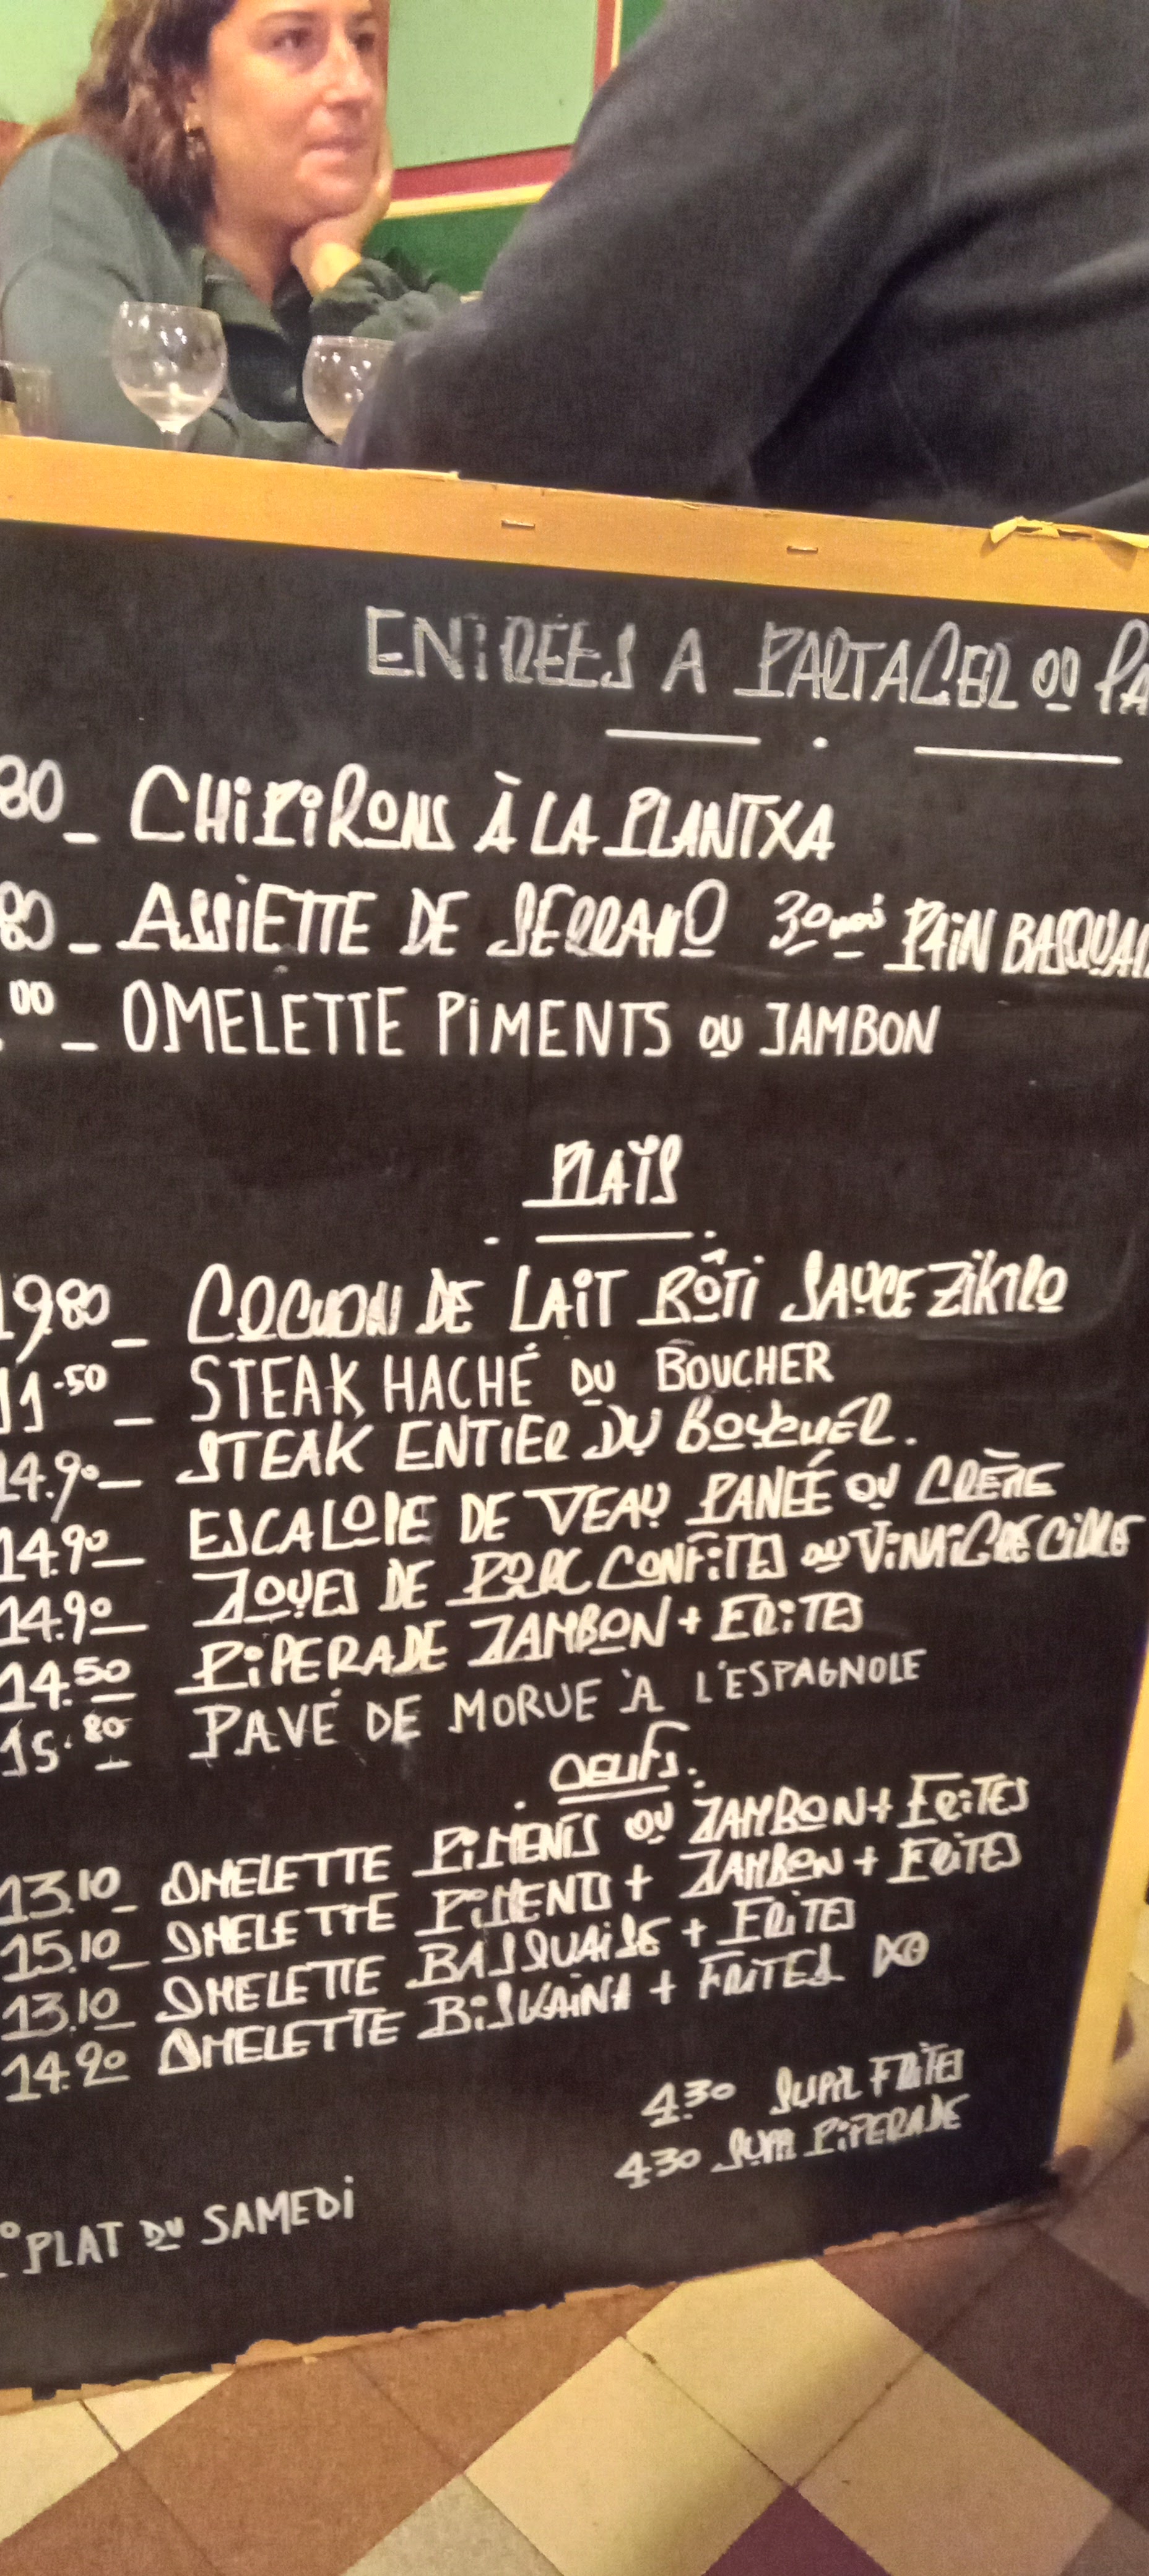 ENTRÉES A PARTAGER OU PA
80 _ CHIPIRONS À LA PLANTXA
80 _ ASSIETTE DE SERRANO 30 mois PAIN BASQUAI
.00 _ OMELETTE PIMENTS OU JAMBON
PLATS
19.80 _ COCHON DE LAIT RÔTI SAUCE ZIKIRO
11.50 _ STEAK HACHÉ DU BOUCHER
14.90 _ STEAK ENTIER DU BOUCHER.
14.90 _ ESCALOPE DE VEAU PANÉE OU CRÈME
14.90 _ JOUES DE PORC CONFITES OU VINAIGRE CIDRE
14.50 _ PIPERADE JAMBON + FRITES
15.80 _ PAVÉ DE MORUE À L'ESPAGNOLE
OEUFS.
13.10 _ OMELETTE PIMENTS OU JAMBON + FRITES
15.10 _ OMELETTE PIMENTS + JAMBON + FRITES
13.10 _ OMELETTE BASQUAISE + FRITES
14.90 OMELETTE BISKAINA + FRITES
4.30 SUPPL FRITES
4.30 SUPP PIPERADE
° PLAT DU SAMEDI